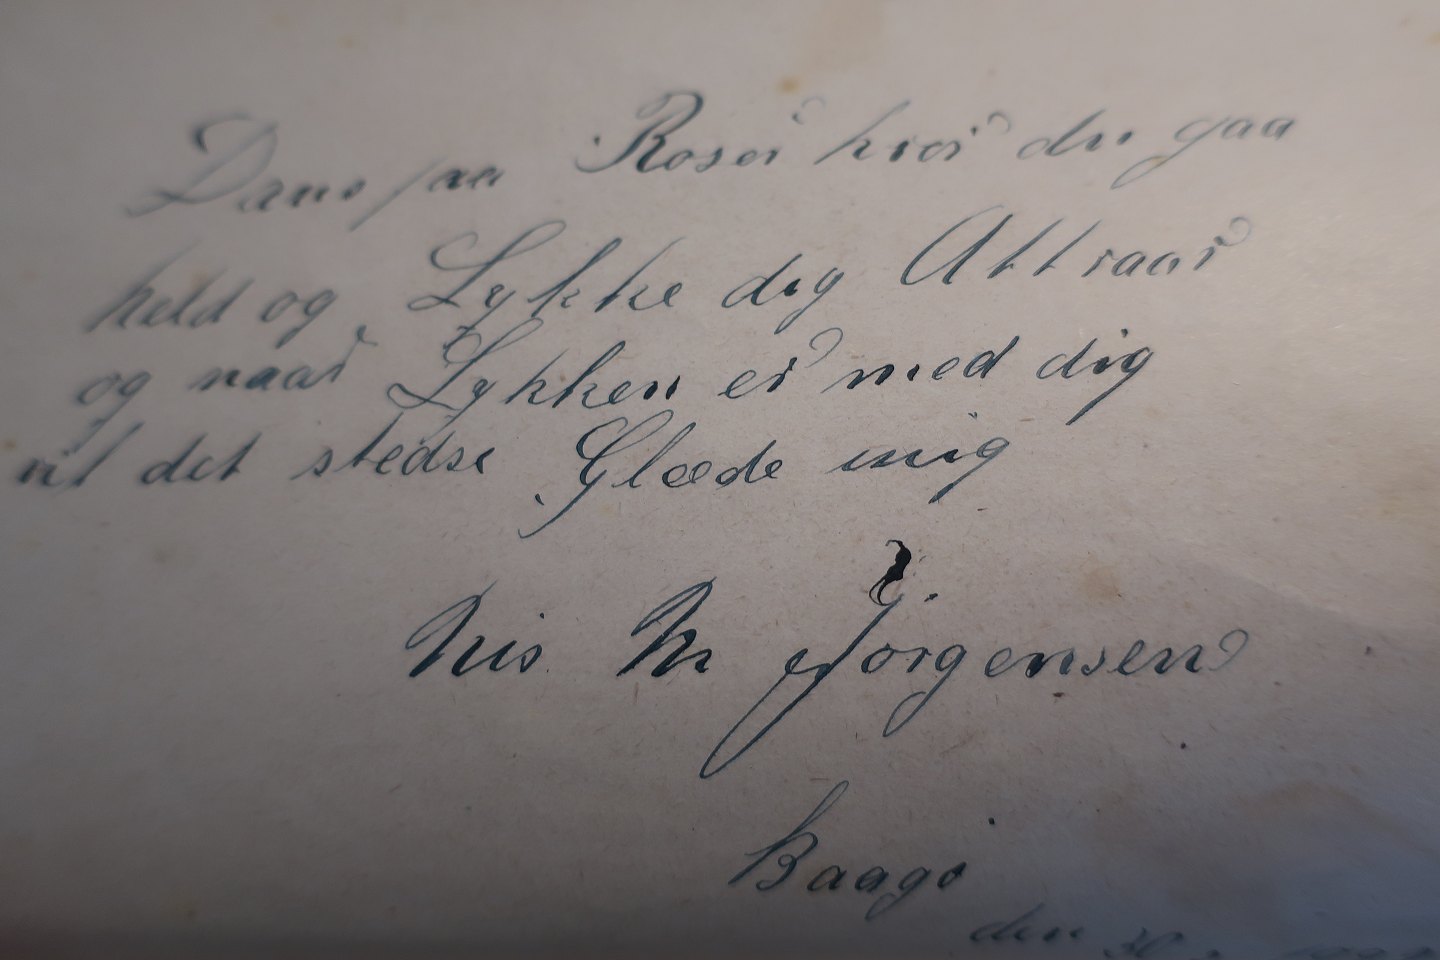 Dans paa Roser hvor du gaa
held og Lykke dig Attraar
og naar Lykken er med dig
vil det stedse Glæde mig
Nis M Jörgensen
Baagö
den